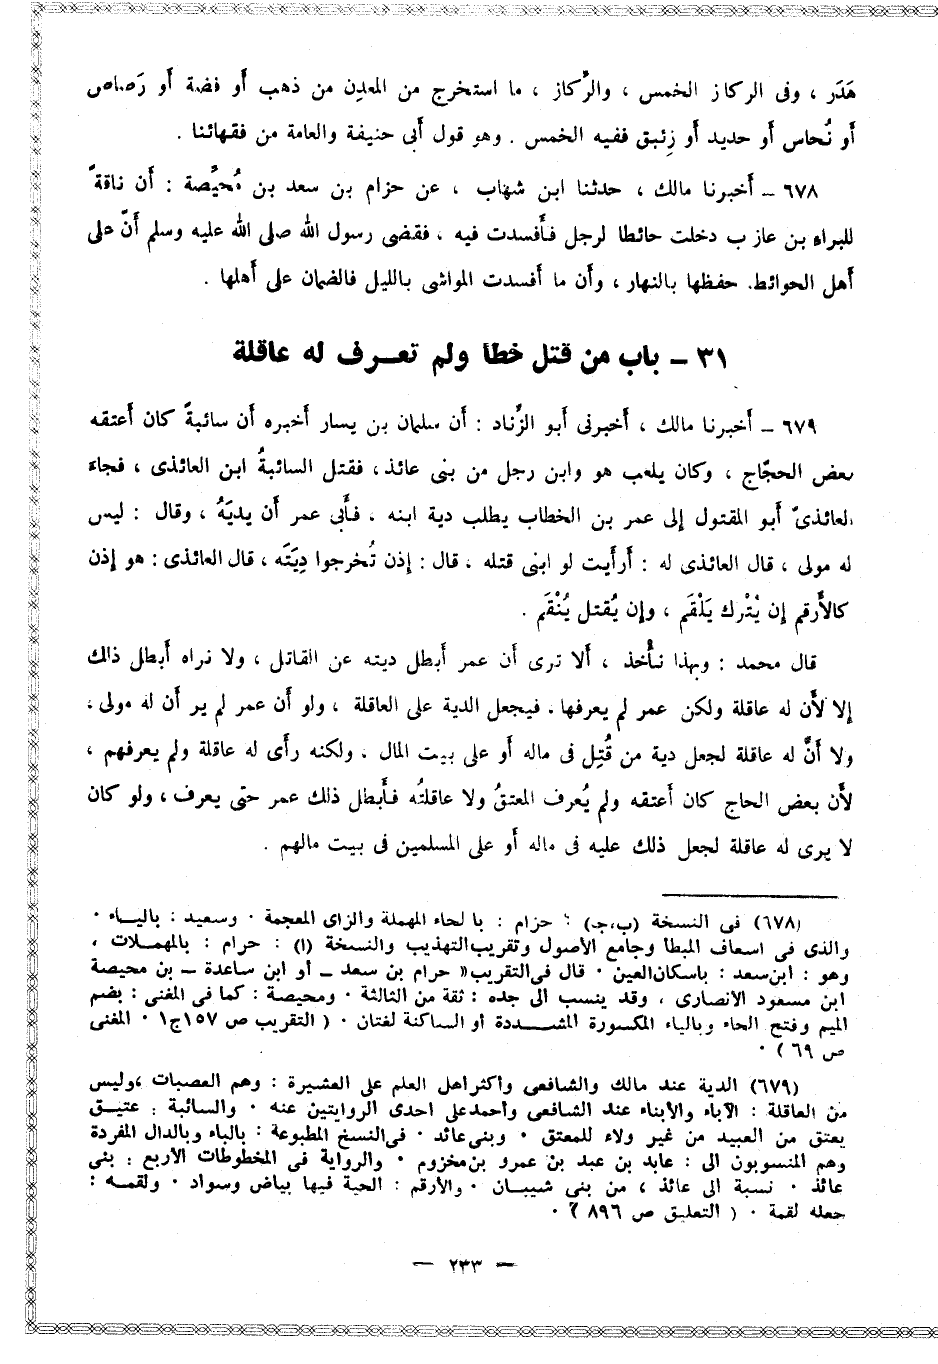 هَدَر ، وفى الركاز الخمس ، والرِّكاز ، ما استخرج من المعدِن من ذهب أو فضة أو رَصاص
أو نُحاس أو حديد أو زِئبق ففيه الخمس . وهو قول أبى حنيفة والعامة من فقهائنا .
٦٧٨ – أخبرنا مالك ، حدثنا ابن شهاب ، عن حزام بن سعد بن مُحيَّصة : أن ناقةً
للبراء بن عازب دخلت حائطا لرجل فأفسدت فيه ، فقضى رسول الله صلى الله عليه وسلم أنّ على
أهل الحوائط حفظها بالنهار ، وأن ما أفسدت المواشى بالليل فالضمان على أهلها .
٣١ – باب من قتل خطأ ولم تعرف له عاقلة
٦٧٩ – أخبرنا مالك ، أخبرنى أبو الزِّناد : أن سلمان بن يسار أخبره أن سائبةً كان أعتقه
بعض الحجّاج ، وكان يلعب هو وابن رجل من بنى عائذ ، فقتل السائبةُ ابن العائذى ، فجاء
العائذىّ أبو المقتول إلى عمر بن الخطاب يطلب دية ابنه . فأبى عمر أن يديَهُ ، وقال : ليس
له مولى ، قال العائذى له : أرأيت لو ابنى قتله ، قال : إذن تُخرجوا دِيَتَه ، قال العائذى : هو إذن
كالأرقم إن يُتْرك يَلْقَم ، وإن يُقتل يُنْقَم .
قال محمد : وبهذا نأخذ ، ألا ترى أن عمر أبطل ديته عن القاتل ، ولا نراه أبطل ذلك
إلا لأن له عاقلة ولكن عمر لم يعرفها . فيجعل الدية على العاقلة ، ولو أن عمر لم ير أن له مولى ،
ولا أنَّ له عاقلة لجعل دية من قُتِل فى ماله أو على بيت المال . ولكنه رأى له عاقلة ولم يعرفهم ،
لأن بعض الحاج كان أعتقه ولم يُعرف المعتقُ ولا عاقلتُه فأبطل ذلك عمر حتى يعرف ، ولو كان
لا يرى له عاقلة لجعل ذلك عليه فى ماله أو على المسلمين فى بيت مالهم .
(٦٧٨) فى النسخة (ب،ج) : حزام : بالحاء المهملة والزاى المعجمة . وسعيد : بالياء .
والذى فى اسعاف المبطا وجامع الأصول وتقريب التهذيب والنسخة (ا) : حرام : بالمهملات ،
وهو : ابن سعد : باسكان العين . قال فى التقريب « حرام بن سعد – أو ابن ساعدة – بن محيصة
ابن مسعود الانصارى ، وقد ينسب الى جده : ثقة من الثالثة . ومحيصة : كما فى المغنى : بضم
الميم وفتح الحاء وبالياء المكسورة المشددة أو الساكنة لغتان . ( التقريب ص ١٥٧ ج١ . المغنى
ص ٦٩ ) .
(٦٧٩) الدية عند مالك والشافعى وأكثر اهل العلم على العشيرة : وهم العصبات ، وليس
من العاقلة : الآباء والأبناء عند الشافعى وأحمد على احدى الروايتين عنه . والسائبة : عتيق
يعتق من العبيد من غير ولاء للمعتق . وبنى عائد . فى النسخ المطبوعة : بالباء وبالدال المفردة
وهم المنسوبون الى : عابد بن عبد بن عمرو بن مخزوم . والرواية فى المخطوطات الأربع : بنى
عائذ . نسبة الى عائذ ، من بنى شيبان . والأرقم : الحية فيها بياض وسواد . ولقمه :
جعله لقمة . ( التعليق ص ٨٩٦ ) .
— ٢٣٣ —